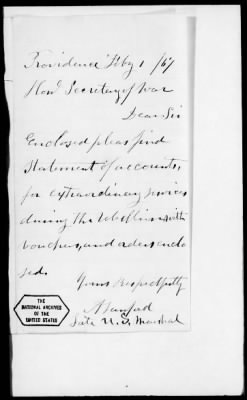 Providence Feby 1 /67
Hond Secretary of War
Dear Sir
Enclosed pleas find
Statement of accounts,
for extraordinary services
during the rebellion, with
vouchers, and orders enclo
sed.
Yours Respectfully
Sanford
Late U.S. Marshal
THE
NATIONAL ARCHIVES
OF THE
UNITED STATES